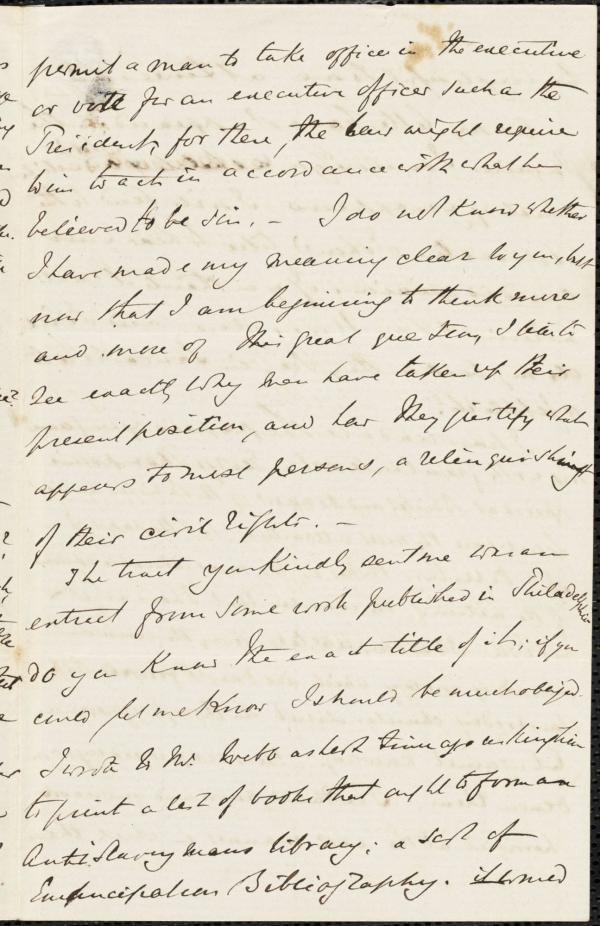 permit a man to take office in the executive
or vote for an executive officer such as the
President, for then, the law might require
him to act in accordance with what he
believed to be sin. — I do not know whether
I have made my meaning clear to you, but
now that I am beginning to think more
and more of this great question, I
see exactly why men have taken up their
present position, and how they justify what
appears to most persons, a relinquishing
of their civil rights. —
The tract you kindly sent me was an
extract from some work published in Philadelphia
Do you know the exact title of it; if you
could let me know I should be much obliged.
I wrote to Mr. Webb a short time ago asking him
to print a list of books that ought to form an
Antislavery mans library; a sort of
Emancipation Bibliography. it